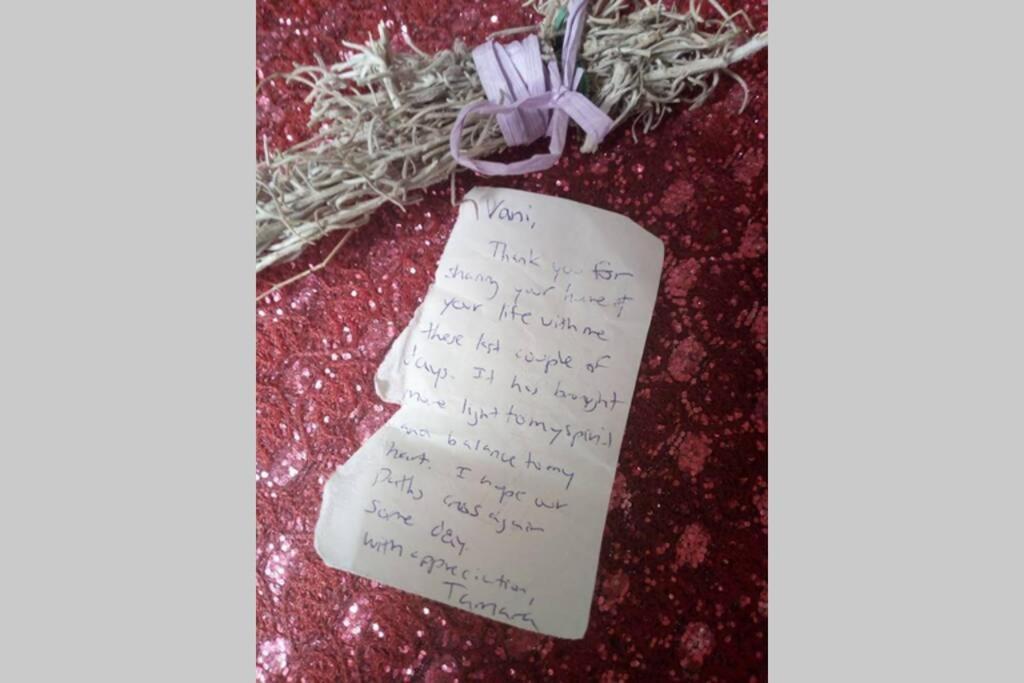 Vani,
Thank you for
sharing your home &
your life with me
these last couple of
days. It has brought
more light to my spirit
and balance to my
heart. I hope our
paths cross again
some day.
with appreciation,
Tamara